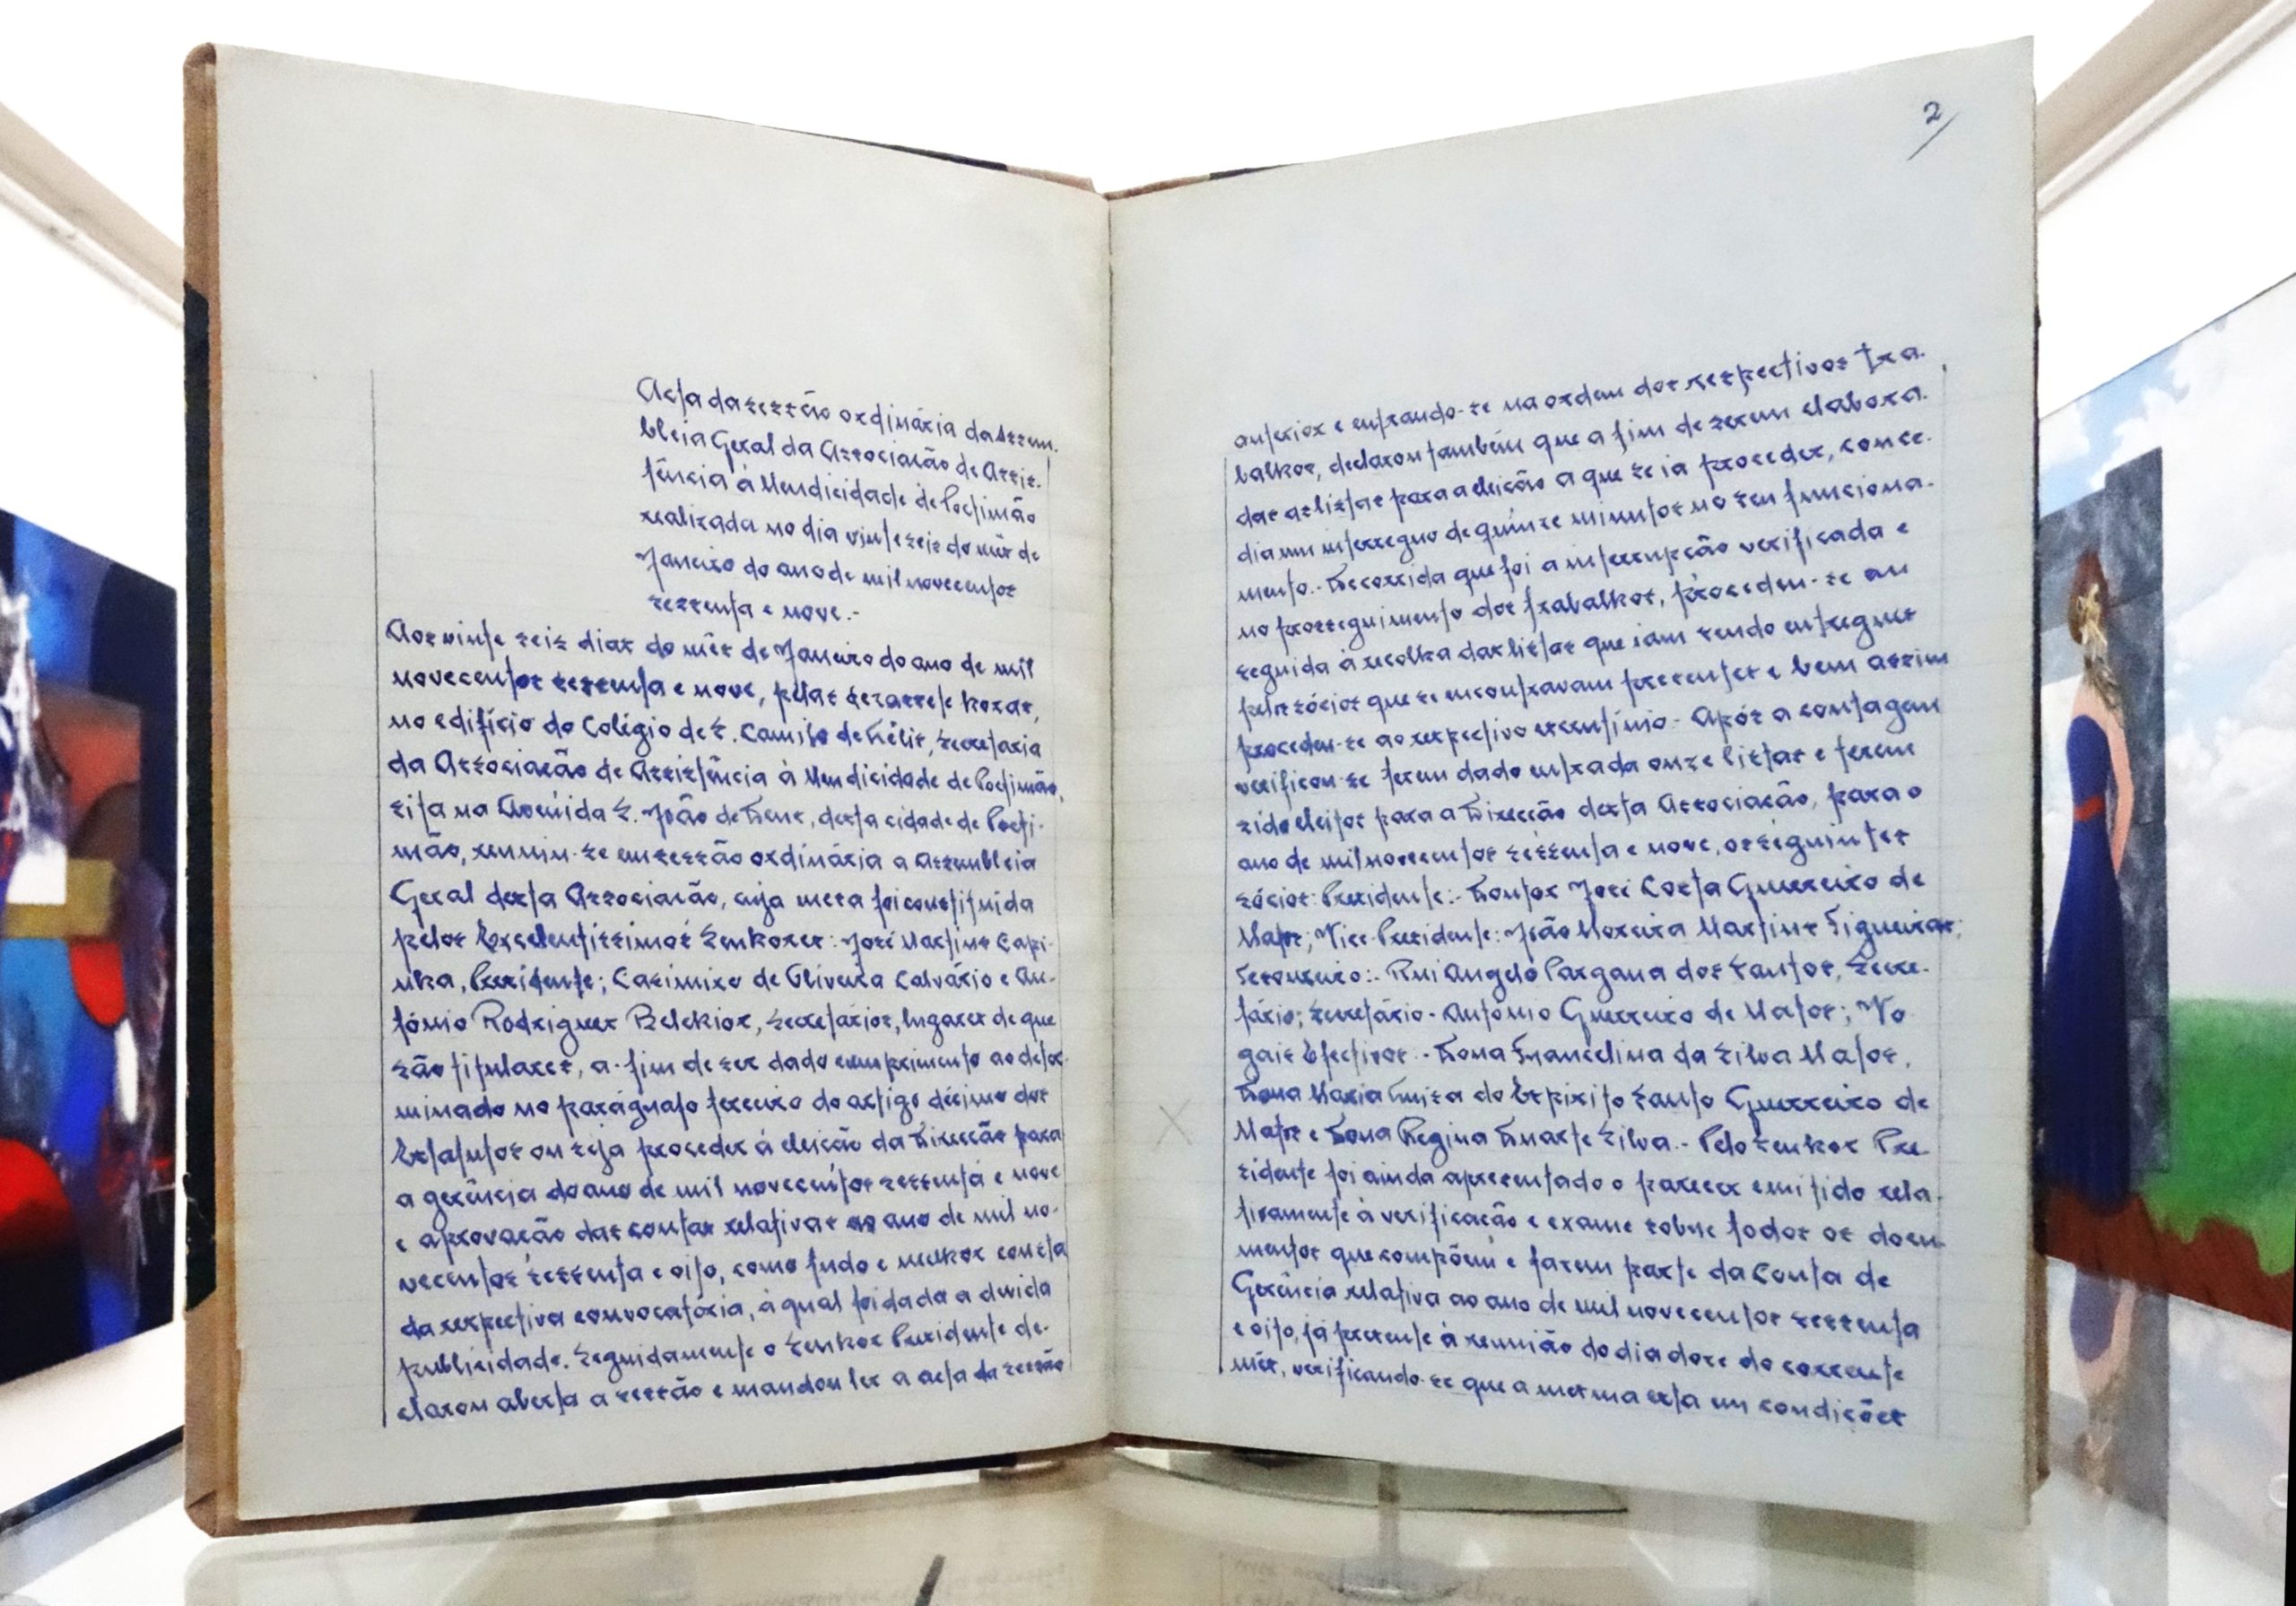 Acta da sessão ordinária da Assem-
bleia Geral da Associação de Assis-
tência à Mendicidade de Portimão
realizada no dia vinte seis do mês de
Janeiro do ano de mil novecentos
sessenta e nove.-
Aos vinte seis dias do mês de Janeiro do ano de mil
novecentos sessenta e nove, pelas dezassete horas,
no edifício do Colégio de S. Camilo de Lélis, Secretaria
da Associação de Assistência à Mendicidade de Portimão,
sita na Avenida S. João de Deus, desta cidade de Porti-
mão, reuniu-se em sessão ordinária a Assembleia
Geral desta Associação, cuja mesa foi constituída
pelos Excelentíssimos Senhores: José Martins Capi-
nha, Presidente; Casimiro de Oliveira Calvário e An-
tónio Rodrigues Belchior, Secretários, lugares de que
são titulares, a-fim de ser dado cumprimento ao deter-
minado no parágrafo terceiro do artigo décimo dos
Estatutos ou seja proceder à eleição da Direcção para
a gerência do ano de mil novecentos sessenta e nove
e aprovação das contas relativas ao ano de mil no-
vecentos sessenta e oito, como tudo e melhor consta
da respectiva convocatória, à qual foi dada a devida
publicidade. Seguidamente o Senhor Presidente de-
clarou aberta a sessão e mandou ler a acta da sessão
2
anterior e entrando-se na ordem dos respectivos tra-
balhos, declarou também que a fim de serem elabora-
das as listas para a eleição a que se ia proceder, conce-
dia um interregno de quinze minutos no seu funciona-
mento.- Decorrida que foi a interrupção verificada e
no prosseguimento dos trabalhos, procedeu-se em
seguida à recolha das listas que iam sendo entregues
pelos sócios que se encontravam presentes e bem assim
procedeu-se ao respectivo escrutínio.- Após a contagem
verificou-se terem dado entrada onze listas e terem
sido eleitos para a Direcção desta Associação, para o
ano de mil novecentos sessenta e nove, os seguintes
sócios: Presidente:- Doutor José Costa Guerreiro de
Matos; Vice-Presidente: João Moreira Martins Figueiras;
Tesoureiro:- Rui Angelo Pargana dos Santos, Secre-
tário; Secretário- António Guerreiro de Matos; Vo
gais Efectivos:- Dona Francelina da Silva Matos,
Dona Maria Luisa do Espirito Santo Guerreiro de
Matos e Dona Regina Duarte Silva.- Pelo Senhor Pre-
sidente foi ainda apresentado o parecer emitido rela-
tivamente à verificação e exame sobre todos os docu-
mentos que compõem e fazem parte da Conta de
Gerência relativa ao ano de mil novecentos sessenta
e oito, já presente à reunião do dia doze do corrente
mês, verificando-se que a mesma está em condições